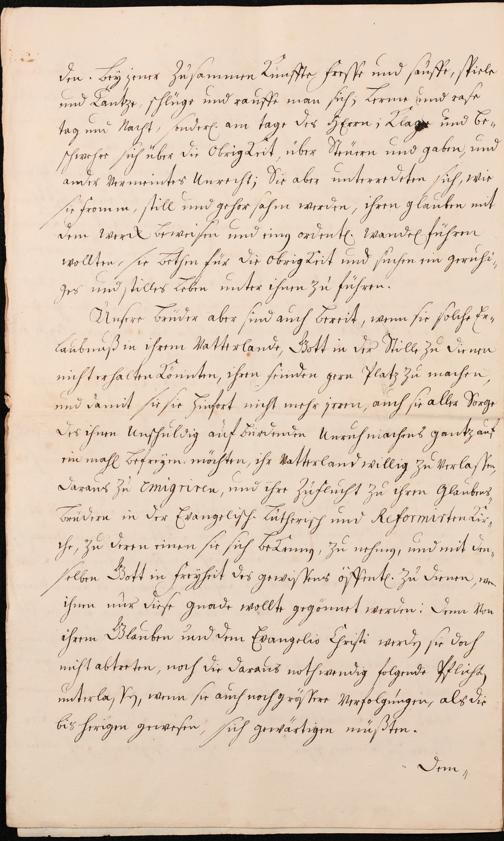 den. Bey jener Zusammen Künffte, fresse und sauffe, spiele
und Tantze, schlüge und rauffe man sich, Lerme und rase
tag und Nacht, sonderl. am tage des HErrn; Klage und be-
schwehre sich über die Obrigkeit, über Steuren und gaben, und
ander vermeintes Unrecht; Sie aber unterredeten sich, wie
sie fromm, still und gehorsahm werden, ihren glauben mit
dem Werck beweisen und einen ordentl. Wandel führen
wollten, sie bethen für die Obrigkeit und suchen ein geruhi-
ges und stilles Leben unter ihnen zu führen.
Unsere Brüder aber sind auch bereit, wenn sie solche Er-
laubnuß in ihrem Vatterlande, Gott in der Stille zu dienen
nicht erhalten Könnten, ihren feinden gern Platz zu machen,
und damit sie sie hinfort nicht mehr irren, auch sie aller Sorge
des ihnen Unschuldig aufbürdenden Unruhmachens gantz auf
ein mahl befreyen möchten, ihr Vatterland willig zu verlassen,
daraus zu emigriren, und ihre Zuflucht zu ihren Glaubens
Brüdern in der Evangelisch-Lutherisch und Reformirten Kir-
che, zu deren einen sie sich bekennen, zu nehmen, und mit den-
selben Gott in freyheit des gewissens öffentl. zu dienen, wen
ihnen nur diese gnade wollte gegönnet werden: denn von
ihrem Glauben und dem Evangelio Christi werden sie doch
nicht abtreten, noch die daraus nothwendig folgende Pflicht
unterlassen, wenn sie auch noch grössere Verfolgungen, als die
bisherigen gewesen, sich gewärtigen müßten.
Dem-